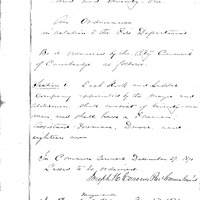 and seventy one
An Ordinance
in relation to the Fire Department
Be it ordained by the City Council
of Cambridge as follows:
Section 1. Each Hook and Ladder
Company appointed by the Mayor and
Aldermen shall consist of twenty-one
men, and shall have a Foreman,
Assistant Foreman, Driver, and
eighteen men
In Common Council December 27, 1871
Passed to be ordained
Joseph H. Converse